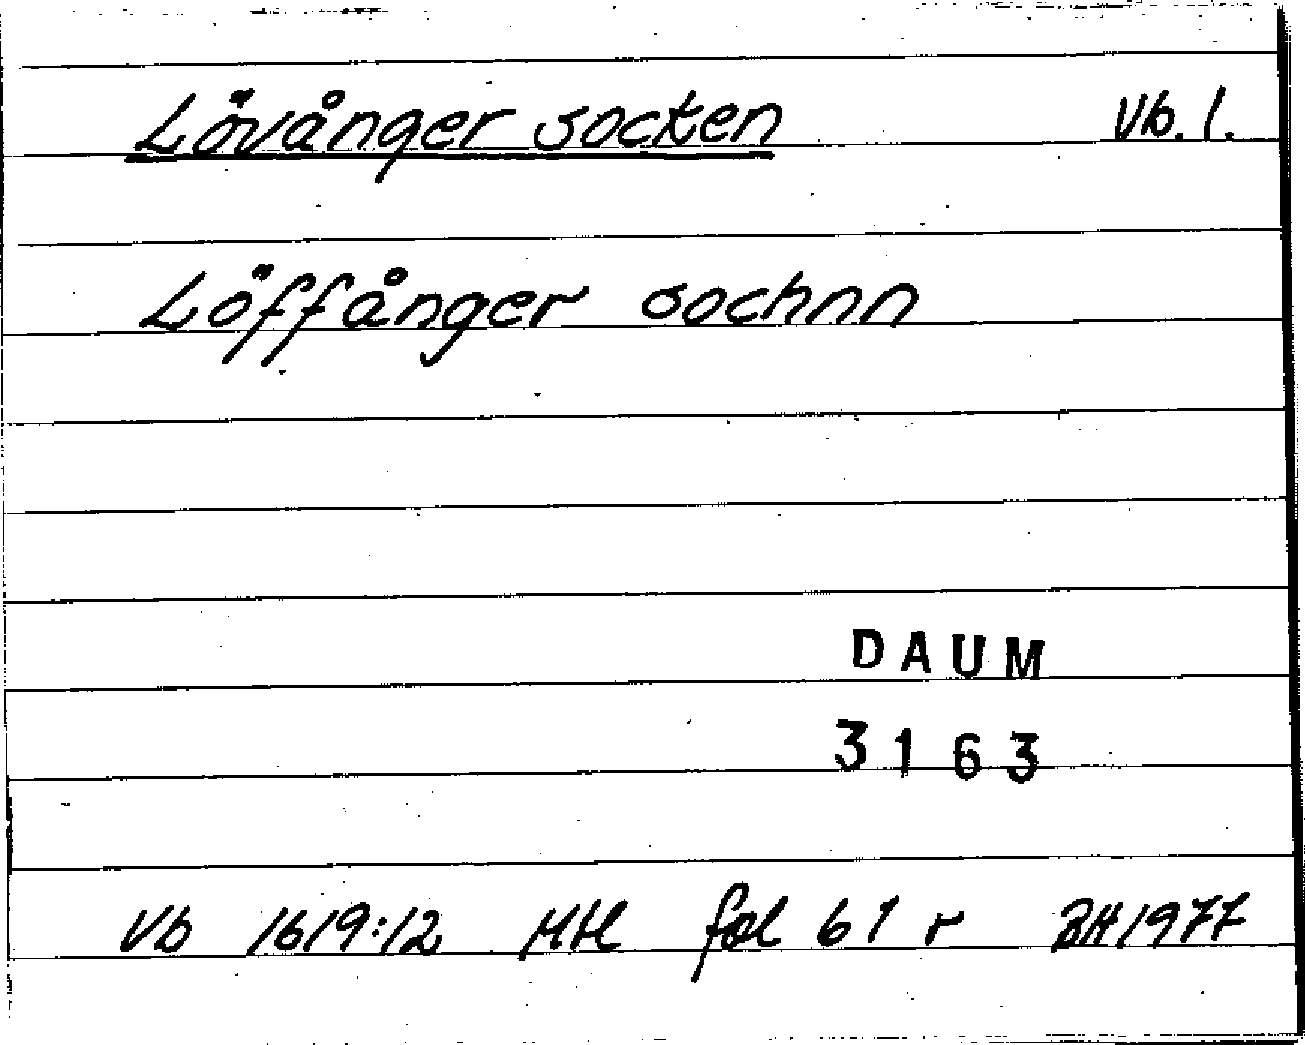 Lövånger socken Vb. l.
Löffånger sochnn
DAUM
3163
Vb 1619:12 MH fol 61 r BH1977